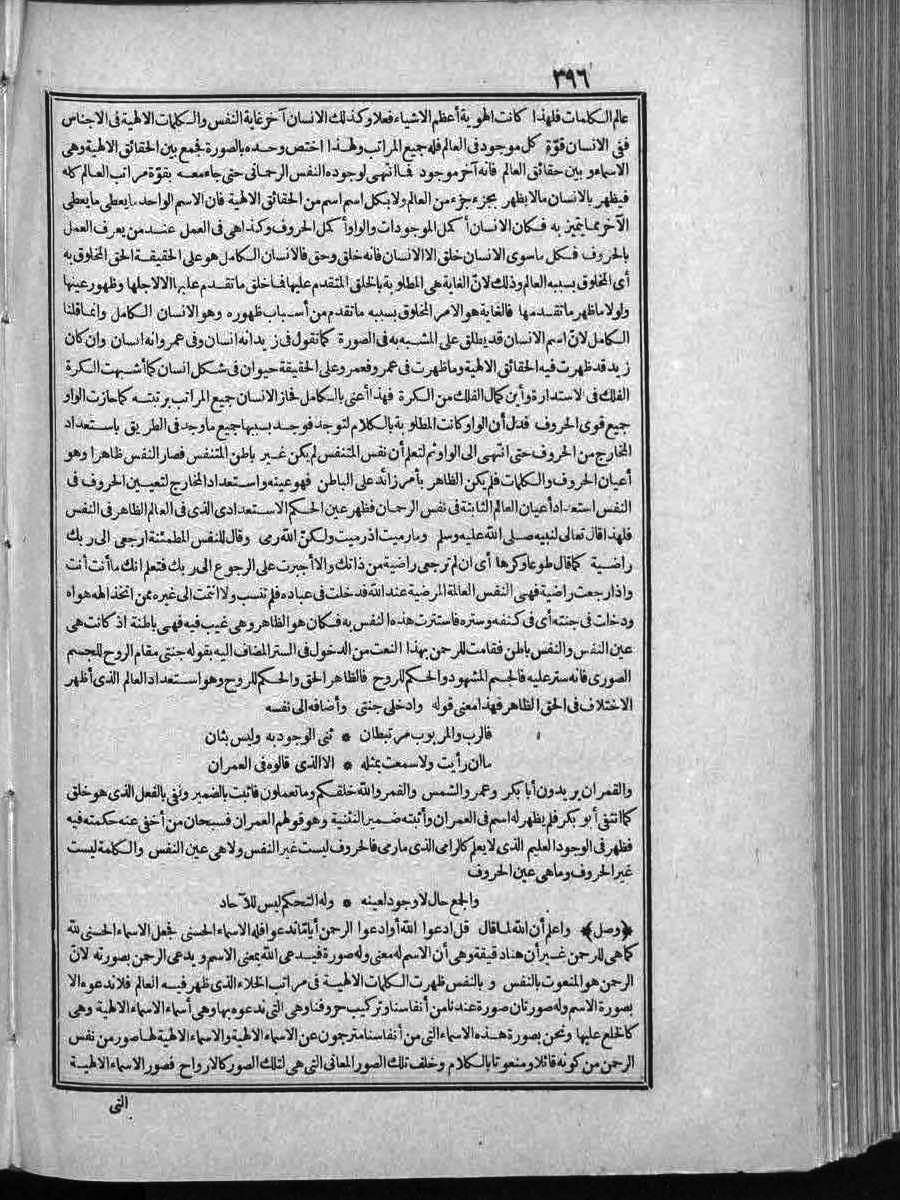 ٣٩٦
عالم الكلمات فلهذا كانت الهوية أعظم الاشياء فعلا وكذلك الانسان آخر غاية النفس والكلمات الالهية فى الاجناس
ففى الانسان قوّة كل موجود فى العالم فله جميع المراتب ولهذا اختص وحده بالصورة فجمع بين الحقائق الالهية وهى
الاسماء وبين حقائق العالم فانه آخر موجود فما انتهى لوجوده النفس الرحمانى حتى جاء معه بقوّة مراتب العالم كله
فيظهر بالانسان مالا يظهر بجزء جزء من العالم ولا بكل اسم اسم من الحقائق الالهية فان الاسم الواحد ما يعطى ما يعطى
الآخر مما يتميز به فكان الانسان أكمل الموجودات والواو أكمل الحروف وكذا هى فى العمل عند من يعرف العمل
بالحروف فكل ما سوى الانسان خلق الا الانسان فانه خلق وحق فالانسان الكامل هو على الحقيقة الحق المخلوق به
أى المخلوق بسببه العالم وذلك لانّ الغاية هى المطلوبة بالخلق المتقدم عليها فما خلق ما تقدم عليها الا لاجلها وظهور عينها
ولولا ما ظهر ما تقدمها فالغاية هو الامر المخلوق بسببه ما تقدم من أسباب ظهوره وهو الانسان الكامل وانما قلنا
الكامل لانّ اسم الانسان قد يطلق على المشبه به فى الصورة كما تقول فى زيد انه انسان وفى عمرو انه انسان وان كان
زيد قد ظهرت فيه الحقائق الالهية وما ظهرت فى عمرو فعمرو على الحقيقة حيوان فى شكل انسان كما أشبهت الكرة
الفلك فى الاستدارة وأين كمال الفلك من الكرة فهذا أعنى بالكامل فحاز الانسان جميع المراتب برتبته كما حازت الواو
جميع قوى الحروف فدل أن الواو كانت المطلوبة بالكلام لتوجد فوجد بسببها جميع ما وجد فى الطريق باستعداد
المخارج من الحروف حتى انتهى الى الواو ثم لتعلم أن نفس المتنفس لم يكن غير باطن المتنفس فصار النفس ظاهرا وهو
أعيان الحروف والكلمات فلم يكن الظاهر بأمر زائد على الباطن فهو عينه واستعداد المخارج لتعيين الحروف فى
النفس استعداد أعيان العالم الثابتة فى نفس الرحمان فظهر عين الحكم الاستعدادى الذى فى العالم الظاهر فى النفس
فلهذا قال تعالى لنبيه صلى الله عليه وسلم وما رميت اذ رميت ولكنّ الله رمى وقال للنفس المطمئنة ارجعى الى ربك
راضية كما قال طوعا وكرها أى ان لم ترجعى راضية من ذاتك والا أجبرت على الرجوع الى ربك فتعلم انك ما أنت أنت
واذا رجعت راضية فهى النفس العالمة المرضية عند الله فدخلت فى عباده فلم تنسب ولا انتمت الى غيره ممن اتخذ الهه هواه
ودخلت فى جنته أى فى كنفه وستره فاستترت هذه النفس به فكان هو الظاهر وهى غيب فيه فهى باطنة اذ كانت هى
عين النفس والنفس باطن فقامت للرحمن بهذا النعت من الدخول فى الستر المضاف اليه بقوله جنتى مقام الروح للجسم
الصورى فانه ستر عليه فالجسم المشهود والحكم للروح فالظاهر الحق والحكم للروح وهو استعداد العالم الذى أظهر
الاختلاف فى الحق الظاهر فهذا معنى قوله وادخلى جنتى وأضافه الى نفسه
فالرب والمربوب مرتبطان * ثنى الوجود به وليس بثان
ما ان رأيت ولا سمعت بمثله * الا الذى قالوه فى العمران
والقمران يريدون أبا بكر وعمر والشمس والقمر والله خلقكم وما تعملون فاثبت بالضمير ونفى بالفعل الذى هو خلق
كما انتفى أبو بكر فلم يظهر له اسم فى العمران وأثبته ضمير التثنية وهو قولهم العمران فسبحان من أخفى عنه حكمته فيه
فظهر فى الوجود العليم الذى لا يعلم كالرامى الذى ما رمى فالحروف ليست غير النفس ولا هى عين النفس والكلمة ليست
غير الحروف وما هى عين الحروف
والجمع حال لا وجود لعينه * وله التحكم ليس للآحاد
﴿وصل﴾ واعلم أن الله لما قال قل ادعوا الله أو ادعوا الرحمن أيّا ما تدعوا فله الاسماء الحسنى فجعل الاسماء الحسنى لله
كما هى للرحمن غير أن هنا دقيقة وهى أن الاسم له معنى وله صورة فيدعى الله بمعنى الاسم ويدعى الرحمن بصورته لانّ
الرحمن هو المنعوت بالنفس وبالنفس ظهرت الكلمات الالهية فى مراتب الخلاء الذى ظهر فيه العالم فلا ندعوه الا
بصورة الاسم وله صورتان صورة عندنا من أنفاسنا وتركيب حروفنا وهى التى ندعوه بها وهى أسماء الاسماء الالهية وهى
كالخلع عليها ونحن بصورة هذه الاسماء التى من أنفاسنا مترجمون عن الاسماء الالهية والاسماء الالهية لها صور من نفس
الرحمن من كونه قائلا ومنعوتا بالكلام وخلف تلك الصور المعانى التى هى لتلك الصور كالارواح فصور الاسماء الالهية
التى